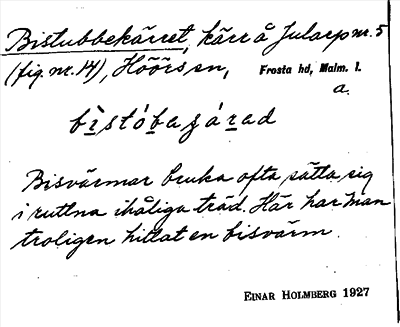 Bistubbekärret, kärr å Jularp nr. 5
(fig. nr. 14), Höörs sn, Frosta hd, Malm. l.
a.
bìstóbaʒárad
Bisvärmar bruka ofta sätta sig
i ruttna ihåliga träd. Här har man
troligen hittat en bisvärm.
EINAR HOLMBERG 1927